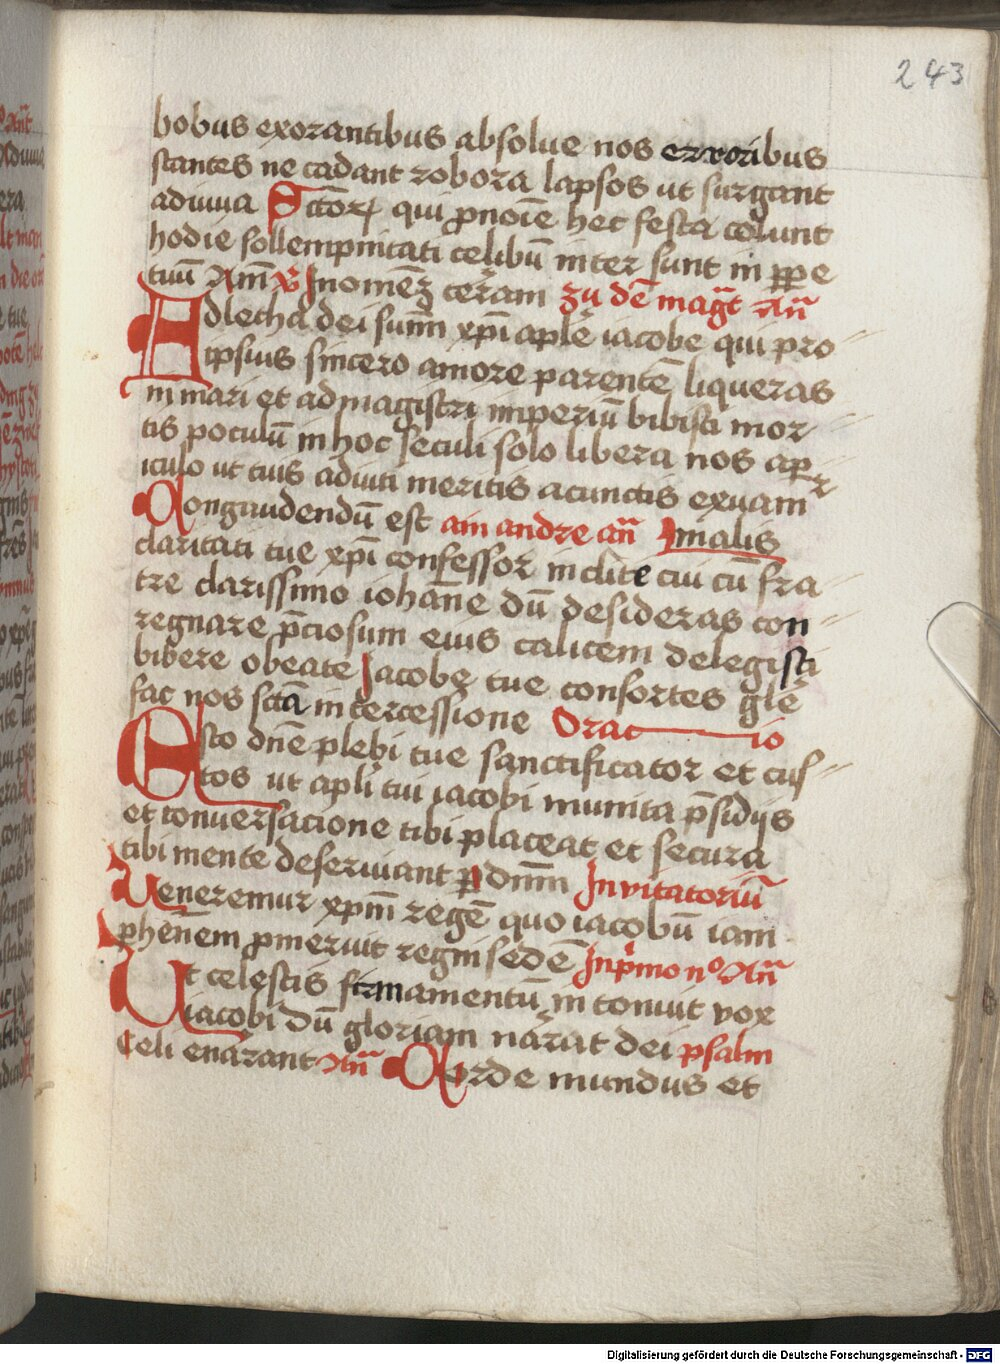 243
bobus exorantibus absolue nos erroribus
stantes ne cadant robora lapsos ut surgant
adiuua Sctoꝝ qui ꝓnoīe hec festa colunt
hodie sollempnitati celibū inter sunt in ꝑpe
tuū Am̄ ꝟ In omēꝫ terram zu dē mag̅t An̄
Adletha dei sum̄i xp̄i aplē iacobe qui pro
ipsius sincero amore parentē liqueras
in mari et ad magistri imperiū bibisti mor
tis poculū in hoc seculi solo libera nos a ꝑ
iculo ut tuis adiuti meritis a cunctis exuamr
Congaudendū est ain andre an̄ malis
claritati tue xp̄i confessor inclite cui cū fra
tre clarissimo iohāne dū desideras con
regnare p̄ciosum eius calicem delegisti
bibere obeate Iacobe tue consortes glē
fac nos sctā intercessione Oracio
Esto dn̄e plebi tue sanctificator et cus
tos ut apli tui iacobi munita p̄sidijs
et conuersacione tibi placeat et secura
tibi mente deseruiant ꝑ dn̄m Invitatoriū
Ueneremur xp̄m regē quo iacobū iam
phēnem ꝓmeruit regni sedē In p̄mo nº An̄
Ut celestis firmamentū in tonuit vox
iacobi dū gloriam nārat dei psalm
Celi enarant An̄ Corde mundus et
Digitalisierung gefördert durch die Deutsche Forschungsgemeinschaft - DFG